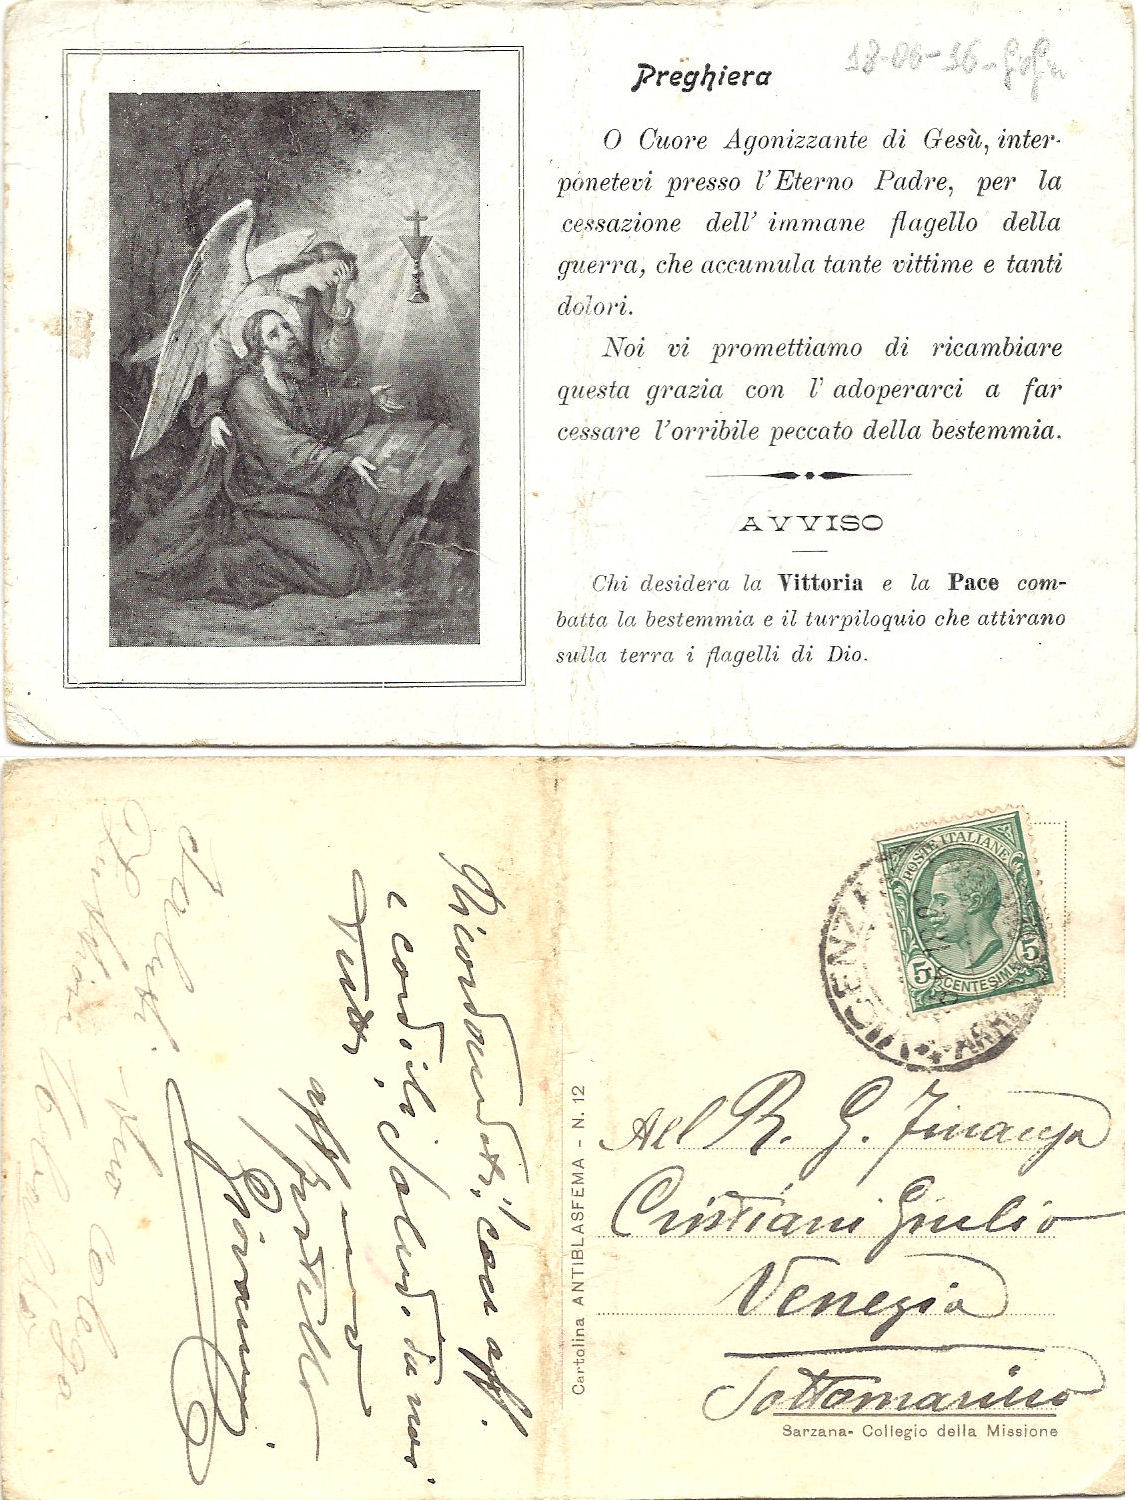 Preghiera
18-06-16-
O Cuore Agonizzante di Gesù, inter-
ponetevi presso l'Eterno Padre, per la
cessazione dell' immane flagello della
guerra, che accumula tante vittime e tanti
dolori.
Noi vi promettiamo di ricambiare
questa grazia con l' adoperarci a far
cessare l'orribile peccato della bestemmia.
AVVISO
Chi desidera la Vittoria e la Pace com-
batta la bestemmia e il turpiloquio che attirano
sulla terra i flagelli di Dio.
Ricordandoti, con aff.
e cordili saluti da noi
Tutti,
aff
fratello
Giovanni
Saluti
Cartolina ANTIBLASFEMA - N. 12
POSTE ITALIANE
5 CENTESIMI 5
All R. G. Finanza
Cristiani Giulio
Venezia
Sottomarino
Sarzana- Collegio della Missione